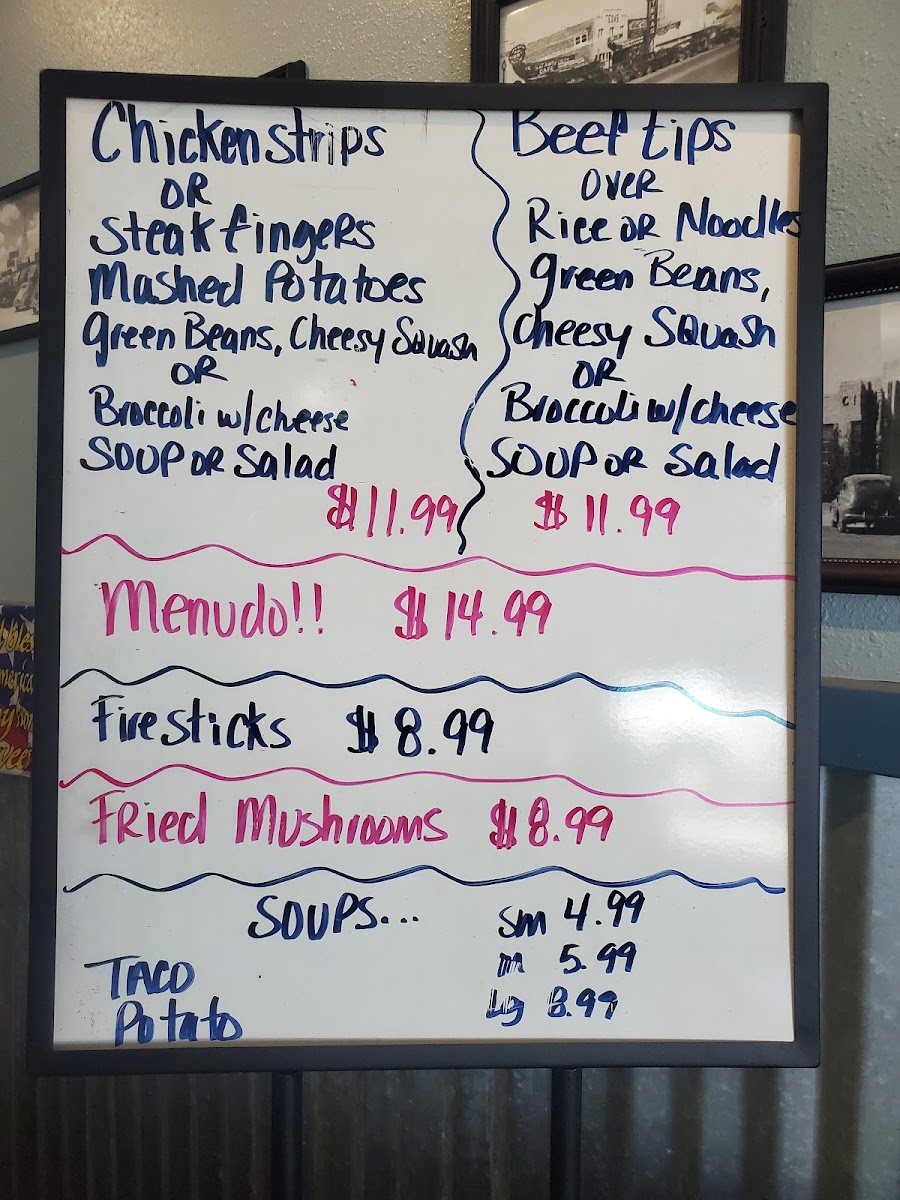 Chicken strips
OR
Steak fingers
Mashed Potatoes
green Beans, Cheesy Squash
OR
Broccoli w/cheese
SOUP OR Salad
$11.99
Beef tips
over
Rice OR Noodles
green Beans,
Cheesy Squash
OR
Broccoli w/cheese
SOUP OR Salad
$11.99
Menudo!! $14.99
Firesticks $8.99
FRied Mushrooms $8.99
SOUPS...
TACO
Potato
Sm 4.99
m 5.99
Lg 8.99